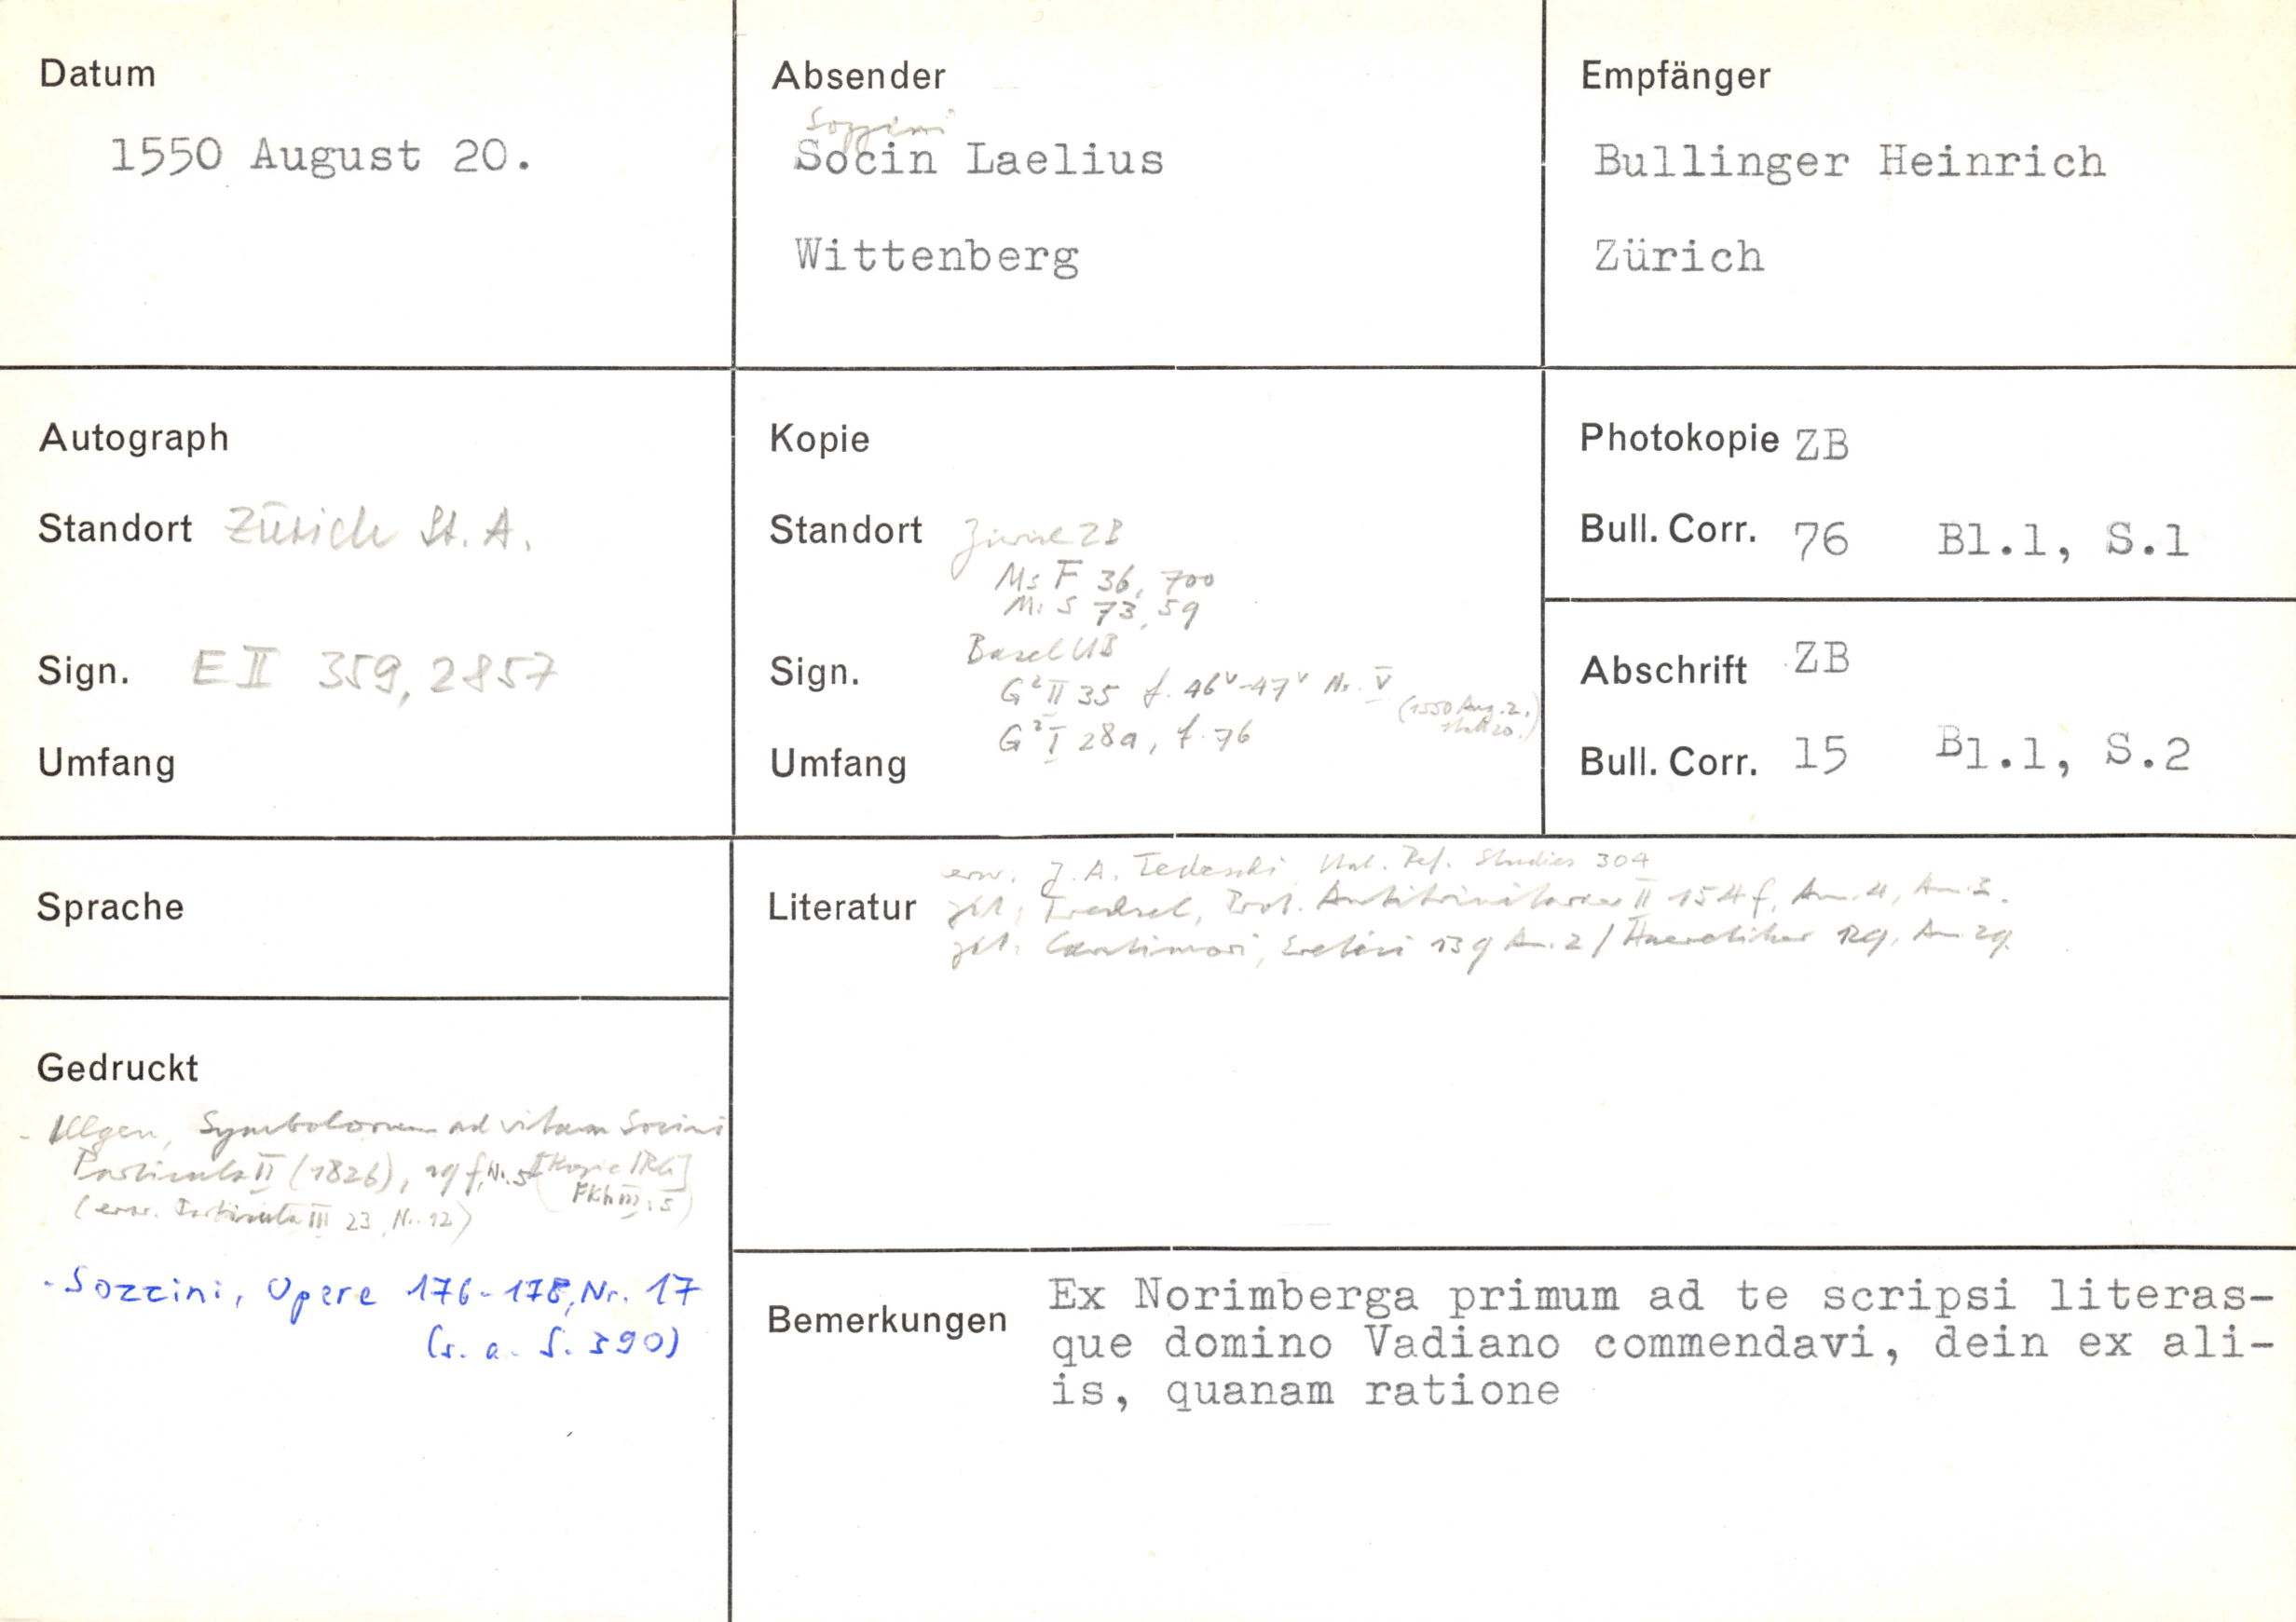 Datum
1550 August 20.
Absender
Sozzini
Socin Laelius
Wittenberg
Empfänger
Bullinger Heinrich
Zürich
Autograph
Standort Zürich St. A.
Sign. E II 359, 2857
Umfang
Kopie
Standort Zürich ZB
Ms F 36, 700
Ms S 73, 59
Basel UB
Sign. G² II 35 f. 46v-47v Nr. V
(1550 Aug. 2. statt 20.)
G² I 28a, f. 76
Umfang
Photokopie ZB
Bull. Corr. 76 Bl.1, S.1
Abschrift ZB
Bull. Corr. 15 Bl.1, S.2
Sprache
Literatur
erw. J. A. Tedeschi, Ital. Ref. Studies 304
zit. Trechsel, Prot. Antitrinitarier II 154 f, Anm. 4, Anm. 3.
zit. Cantimori, Eretici 139 Anm. 2 / Haeretiker 129, Anm. 29
Gedruckt
- Illgen, Symbolorum ad vitam Socini
Particula II (1826), 19 f, Nr. 5 [Kopie IRG]
(erw. Particula III 23, Nr. 12)
- Sozzini, Opere 176-178, Nr. 17
(s. a. S. 390)
Bemerkungen
Ex Norimberga primum ad te scripsi literas-
que domino Vadiano commendavi, dein ex ali-
is, quanam ratione